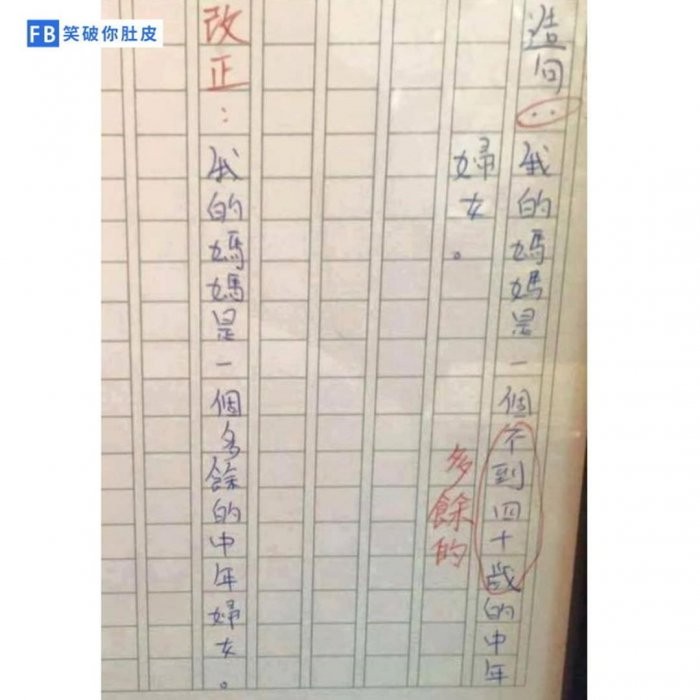 FB 笑破你肚皮
造句：
我的媽媽是一個不到四十歲的中年
婦女。
多餘的
改正：
我的媽媽是一個多餘的中年婦女。